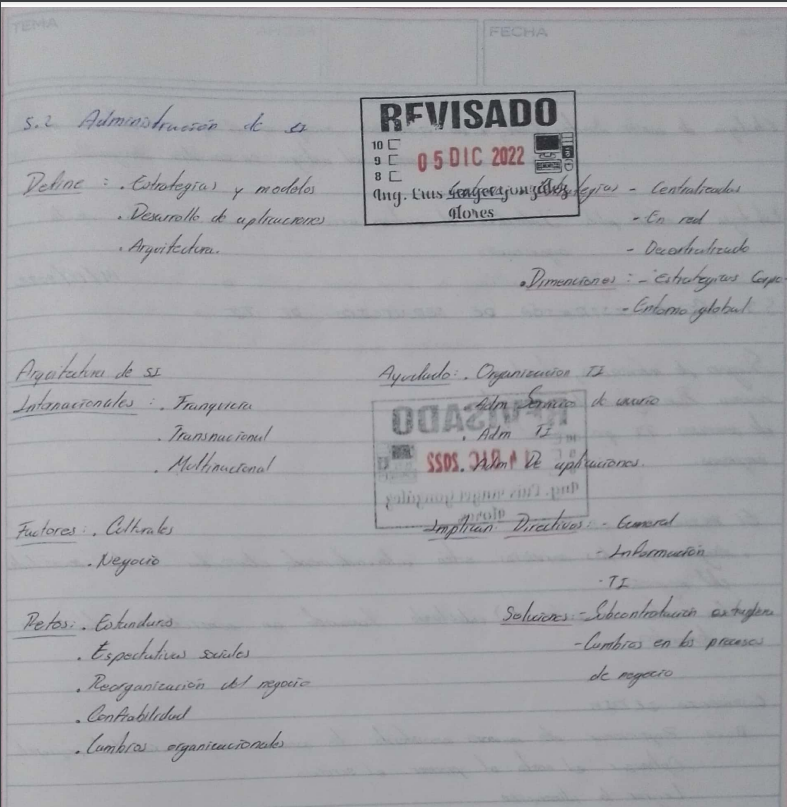 TEMA
FECHA
5.2 Administración de SI
REVISADO
10
9
8
05 DIC 2022
Ing. Luis Angel gonzález
flores
Define : . Estrategias y modelos
. Desarrollo de aplicaciones
. Arquitectura.
Estrategias - Centralizados
- En red
- Decentralizado
. Dimenciones : - Estrategias Corpo-
- Entorno global
Arquitectura de SI
Internacionales : . Franquicia
. Transnacional
. Multinacional
Ayudado: . Organizacion TI
. Adm Servicio de usuario
. Adm TI
. Adm De aplicaciones.
Factores : . Culturales
. Negocio
Implican: Directivos: - General
- Información
- TI
Retos: . Estandares
. Espectativas sociales
. Reorganización del negocio
. Confiabilidad
. Cambios organizacionales
Soluciones: - Subcontratación extranjera
- Cambios en los procesos
de negocio